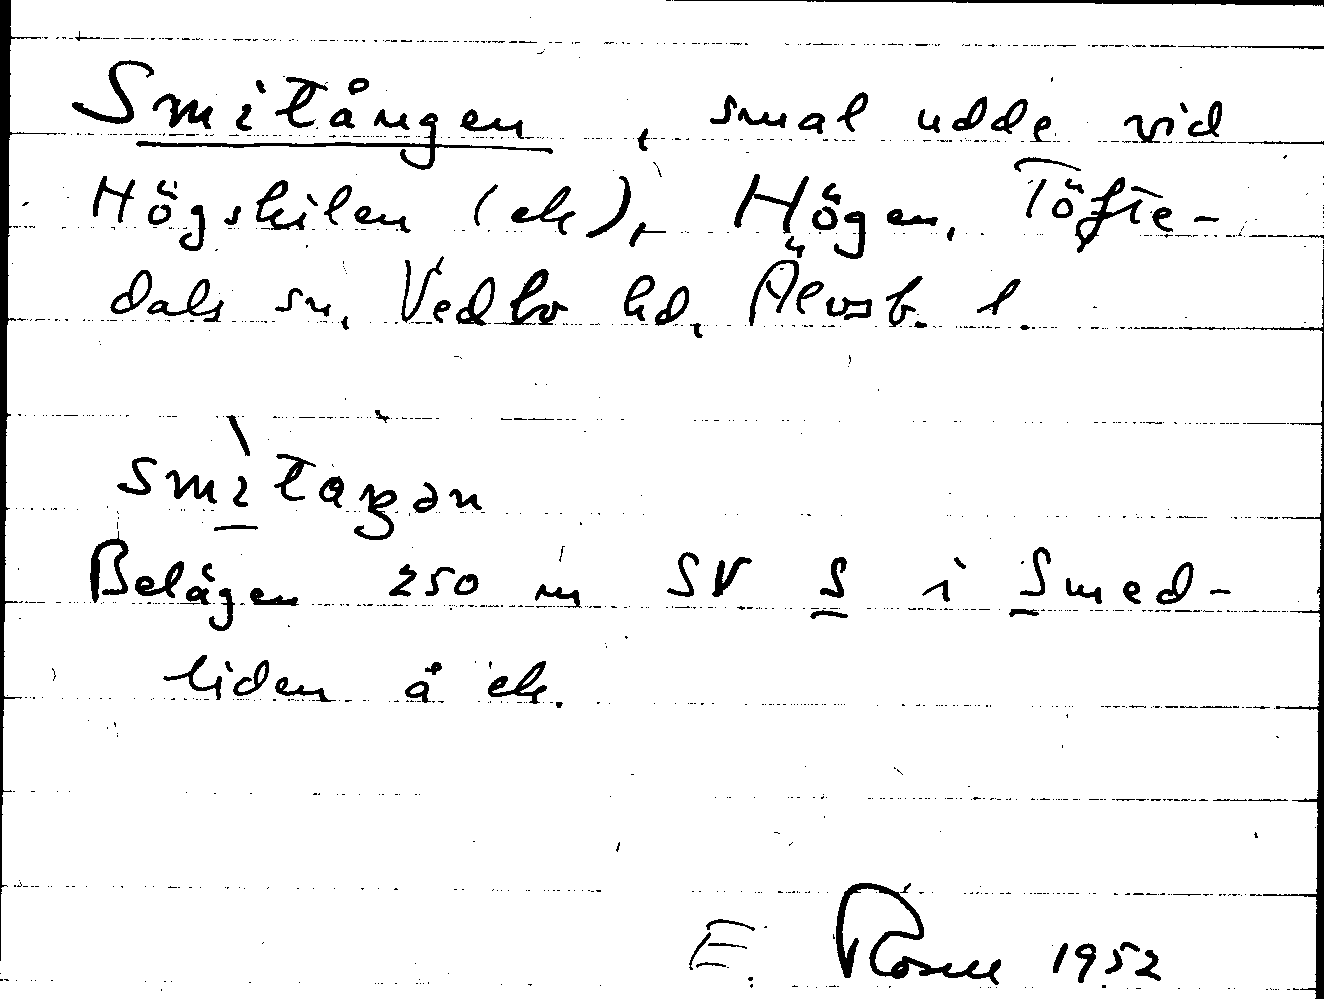 Smitången, smal udde vid
Högskilen (ek), Högen, Töfte-
dals sn, Vedbo hd, Älvsb. l.
smìtaŋən
Belägen 250 m SV S i Smed-
liden å ek.
E. Rosell 1952